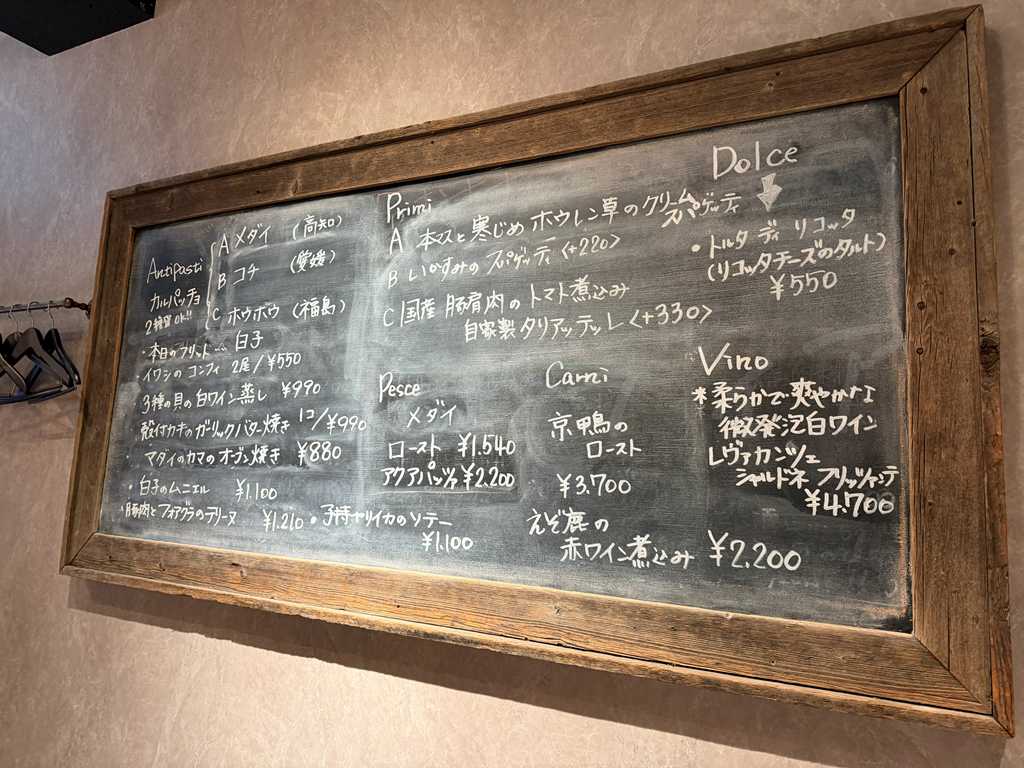 Antipasti
カルパッチョ
2種類OK!!
A メダイ (高知)
B コチ (愛媛)
C ホウボウ (福島)
・本日のフリット…白子
・イワシのコンフィ 2尾/¥550
・3種の貝の白ワイン蒸し ¥990
・殻付カキのガーリックバター焼き 1コ/¥990
・マダイのカマのオーブン焼き ¥880
・白子のムニエル ¥1.100
・豚肉とフォアグラのテリーヌ ¥1.210
・子持ヤリイカのソテー
¥1.100
Primi
A 本マスと寒じめホウレン草のクリームスパゲッティ
B いかすみのスパゲッティ <+220>
C 国産豚肩肉のトマト煮込み
自家製タリアッテッレ <+330>
Pesce
メダイ
ロースト ¥1.540
アクアパッツァ ¥2.200
Carni
京鴨の
ロースト
¥3.700
えぞ鹿の
赤ワイン煮込み ¥2.200
Dolce
・トルタ ディ リコッタ
(リコッタチーズのタルト)
¥550
Vino
*柔らかで爽やかな
微発泡白ワイン
レヴァカンツェ
シャルドネ フリッツァンテ
¥4.700